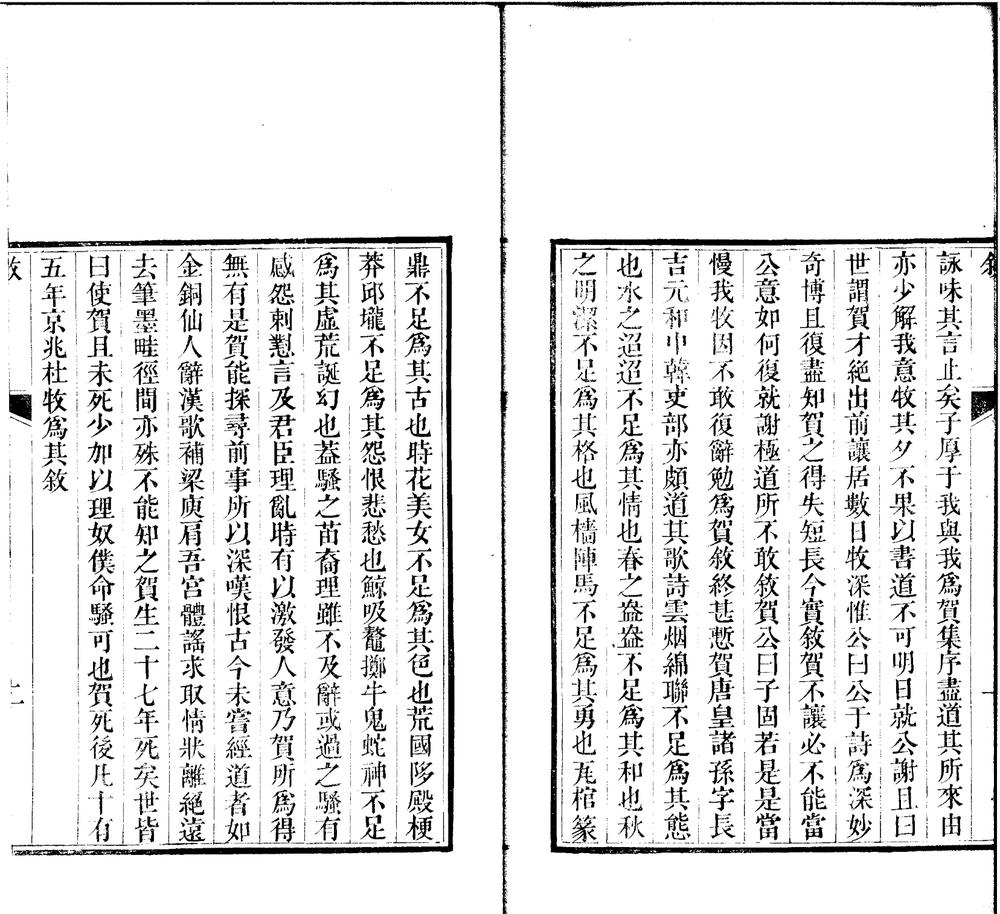 詠味其言止矣子厚于我與我為賀集序盡道其所來由
亦少解我意牧其夕不果以書道不可明日就公謝且曰
世謂賀才絕出前讓居數日牧深惟公曰公于詩為深妙
奇博且復盡知賀之得失短長今實敘賀不讓必不能當
公意如何復就謝極道所不敢敘賀公曰子固若是是當
慢我牧因不敢復辭勉為賀敘終甚慙賀唐皇諸孫字長
吉元和中韓吏部亦頗道其歌詩雲烟綿聯不足為其態
也水之迢迢不足為其情也春之盎盎不足為其和也秋
之明潔不足為其格也風檣陣馬不足為其勇也瓦棺篆
鼎不足為其古也時花美女不足為其色也荒國陊殿梗
莽邱壠不足為其怨恨悲愁也鯨吸鼇擲牛鬼蛇神不足
為其虛荒誕幻也蓋騷之苗裔理雖不及辭或過之騷有
感怨刺懟言及君臣理亂時有以激發人意乃賀所為得
無有是賀能探尋前事所以深嘆恨古今未嘗經道者如
金銅仙人辭漢歌補梁庾肩吾宮體謠求取情狀離絕遠
去筆墨畦徑間亦殊不能知之賀生二十七年死矣世皆
曰使賀且未死少加以理奴僕命騷可也賀死後凡十有
五年京兆杜牧為其敘